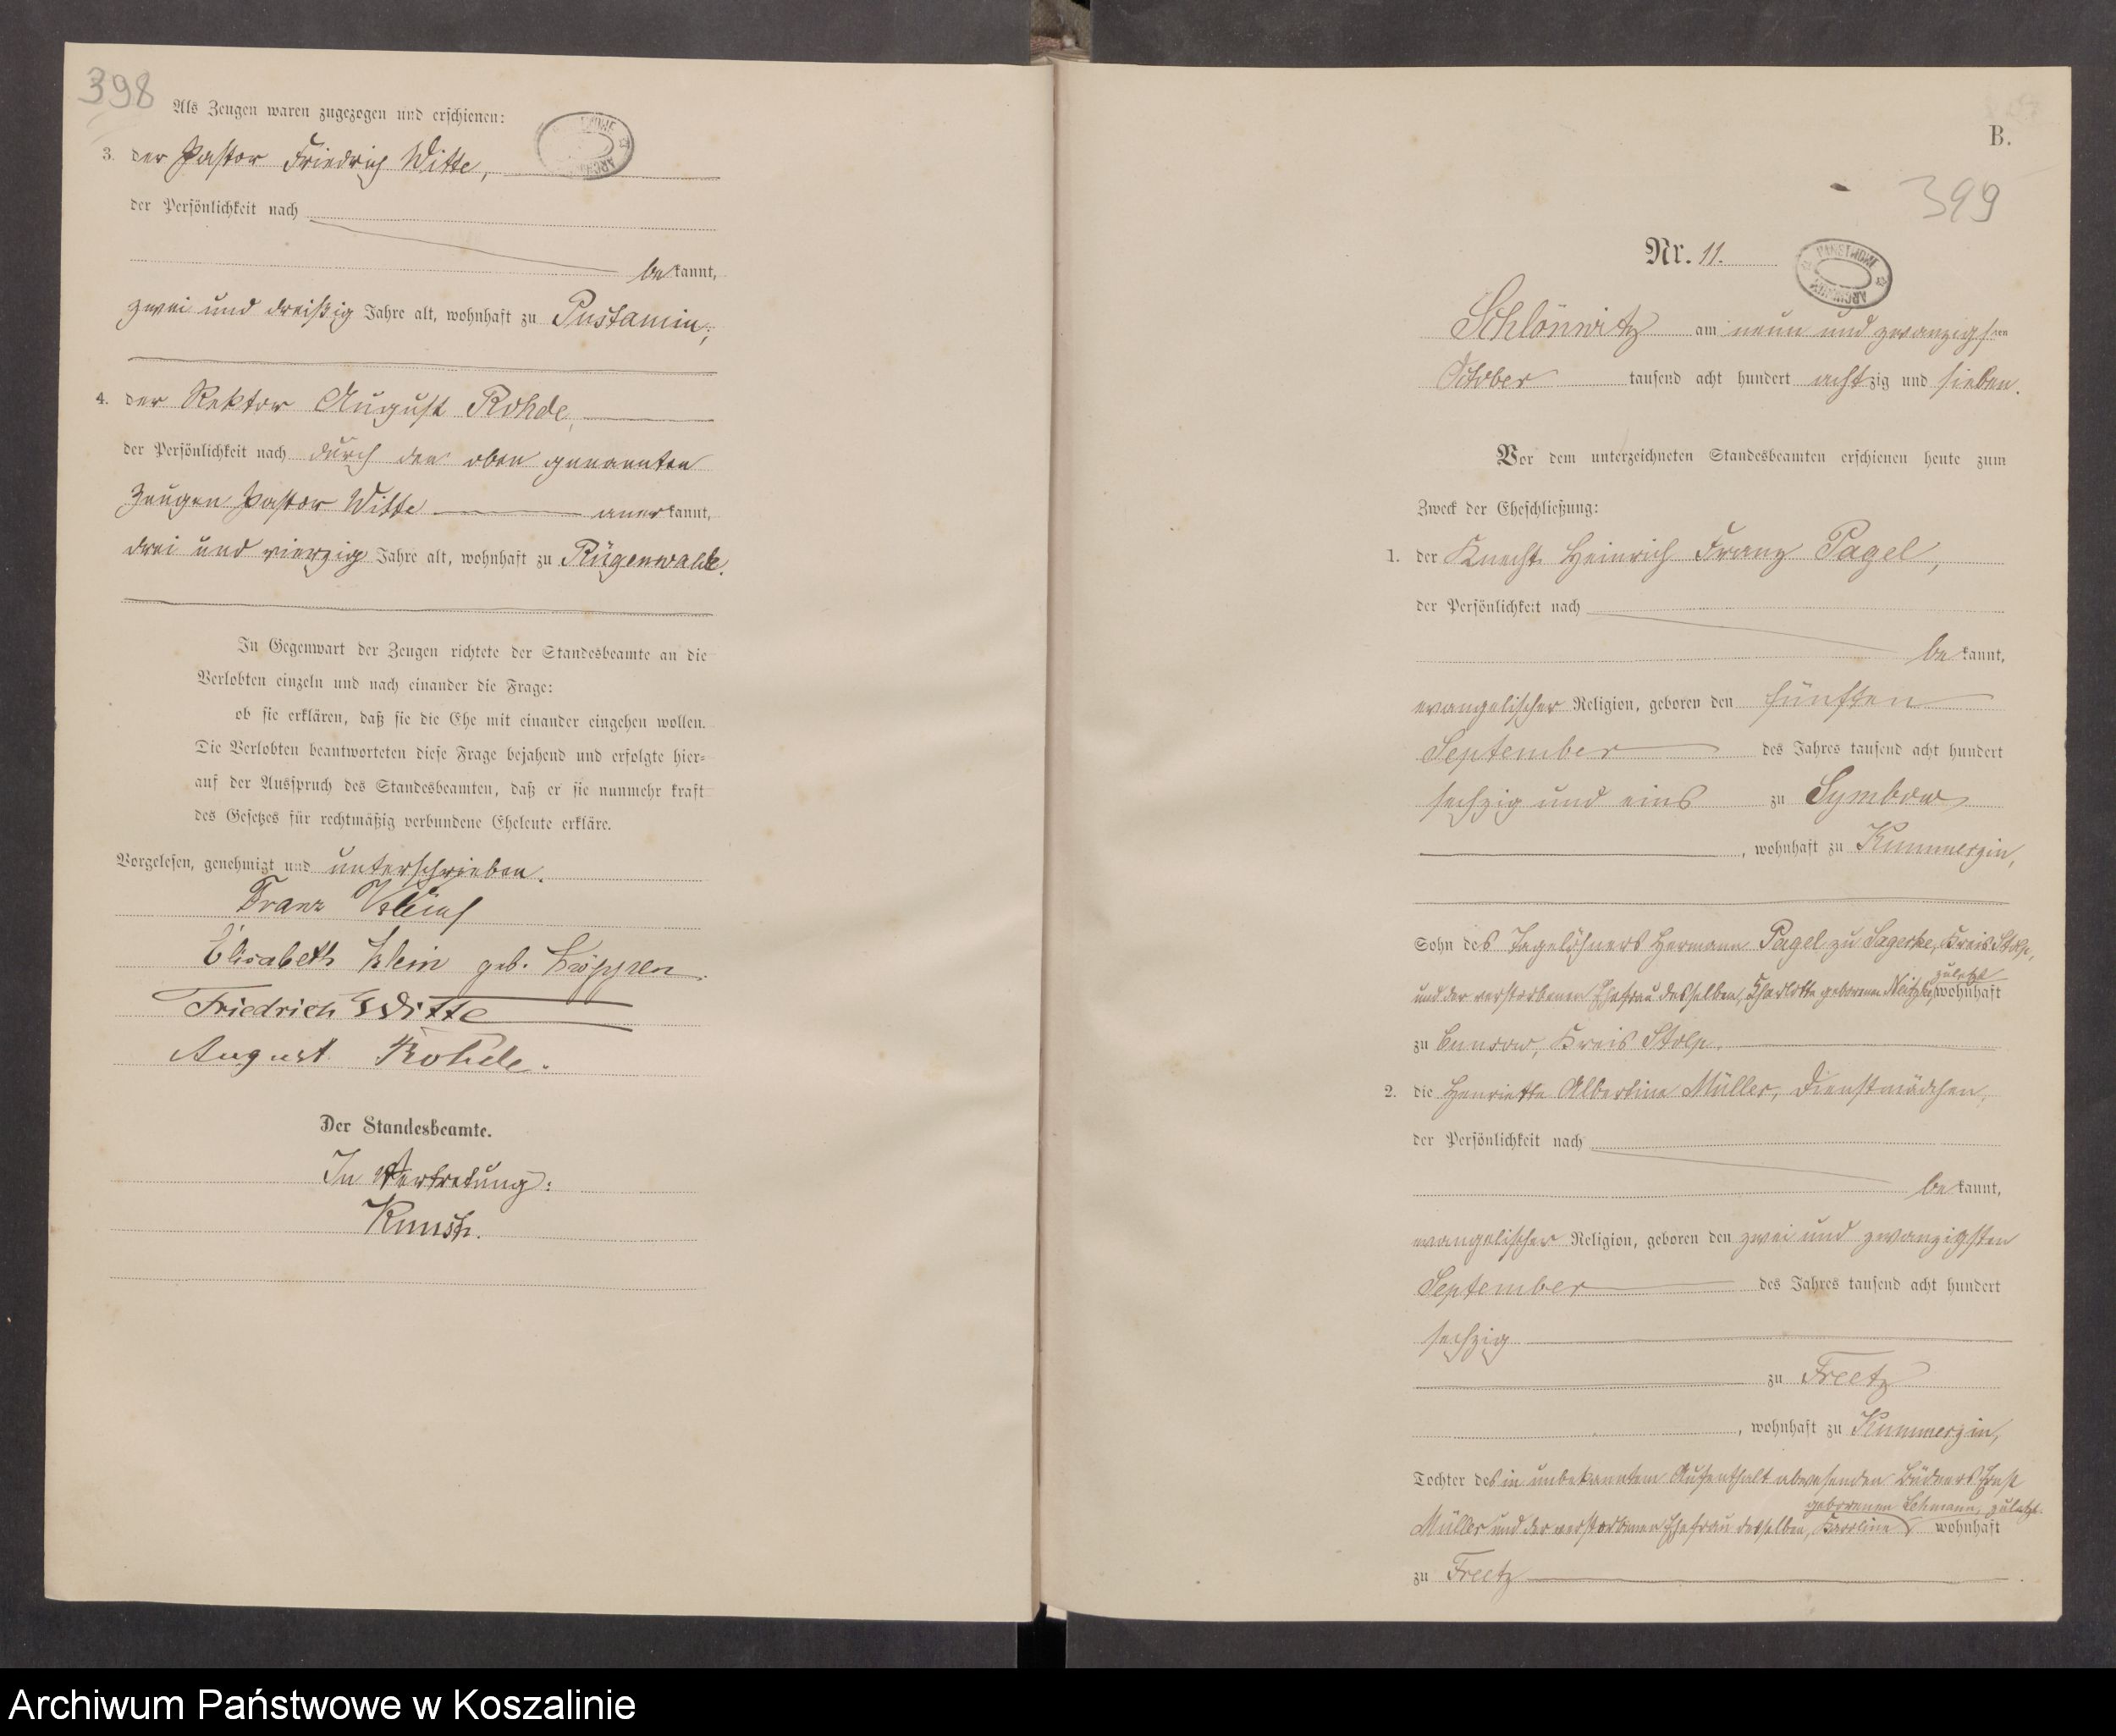 398
Als Zeugen waren zugezogen und erschienen:
3. der Pastor Friedrich Witte,
der Persönlichkeit nach
bekannt,
zwei und dreißig Jahre alt, wohnhaft zu Pustamin;
4. der Rektor August Rohde,
der Persönlichkeit nach durch den oben genannten
Zeugen Pastor Witte anerkannt,
drei und vierzig Jahre alt, wohnhaft zu Rügenwalde.
In Gegenwart der Zeugen richtete der Standesbeamte an die
Verlobten einzeln und nach einander die Frage:
ob sie erklären, daß sie die Ehe mit einander eingehen wollen.
Die Verlobten beantworteten diese Frage bejahend und erfolgte hier-
auf der Ausspruch des Standesbeamten, daß er sie nunmehr kraft
des Gesetzes für rechtmäßig verbundene Eheleute erkläre.
Vorgelesen, genehmigt und unterschrieben.
Franz
Elisabeth Klein geb.
Friedrich Witte
August Rohde.
Der Standesbeamte.
In Vertretung:
B.
399
Nr. 11.
PANSTWOWE ARCHIWUM
Schlönwitz am neun und zwanzigsten
October tausend acht hundert achtzig und sieben.
Vor dem unterzeichneten Standesbeamten erschienen heute zum
Zweck der Eheschließung:
1. der Knecht Heinrich Franz Pagel,
der Persönlichkeit nach
bekannt,
evangelischer Religion, geboren den fünften
September des Jahres tausend acht hundert
sechzig und eins zu Symbow
, wohnhaft zu Kummerzin,
Sohn des Tagelöhners Hermann Pagel zu Sagerke, Kreis Stolp,
und der verstorbenen Ehefrau desselben, Charlotte geborenen Neitzke, zuletzt wohnhaft
zu Bunsow, Kreis Stolp.
2. die Henriette Albertine Müller, Dienstmädchen,
der Persönlichkeit nach
bekannt,
evangelischer Religion, geboren den zwei und zwanzigsten
September des Jahres tausend acht hundert
sechzig
zu Freetz
, wohnhaft zu Kummerzin,
Tochter des in unbekanntem Aufenthalt abwesenden Büdners Ernst
Müller und der verstorbenen Ehefrau desselben, Karoline geborenen Lehmann, zuletzt wohnhaft
zu Freetz
Archiwum Państwowe w Koszalinie